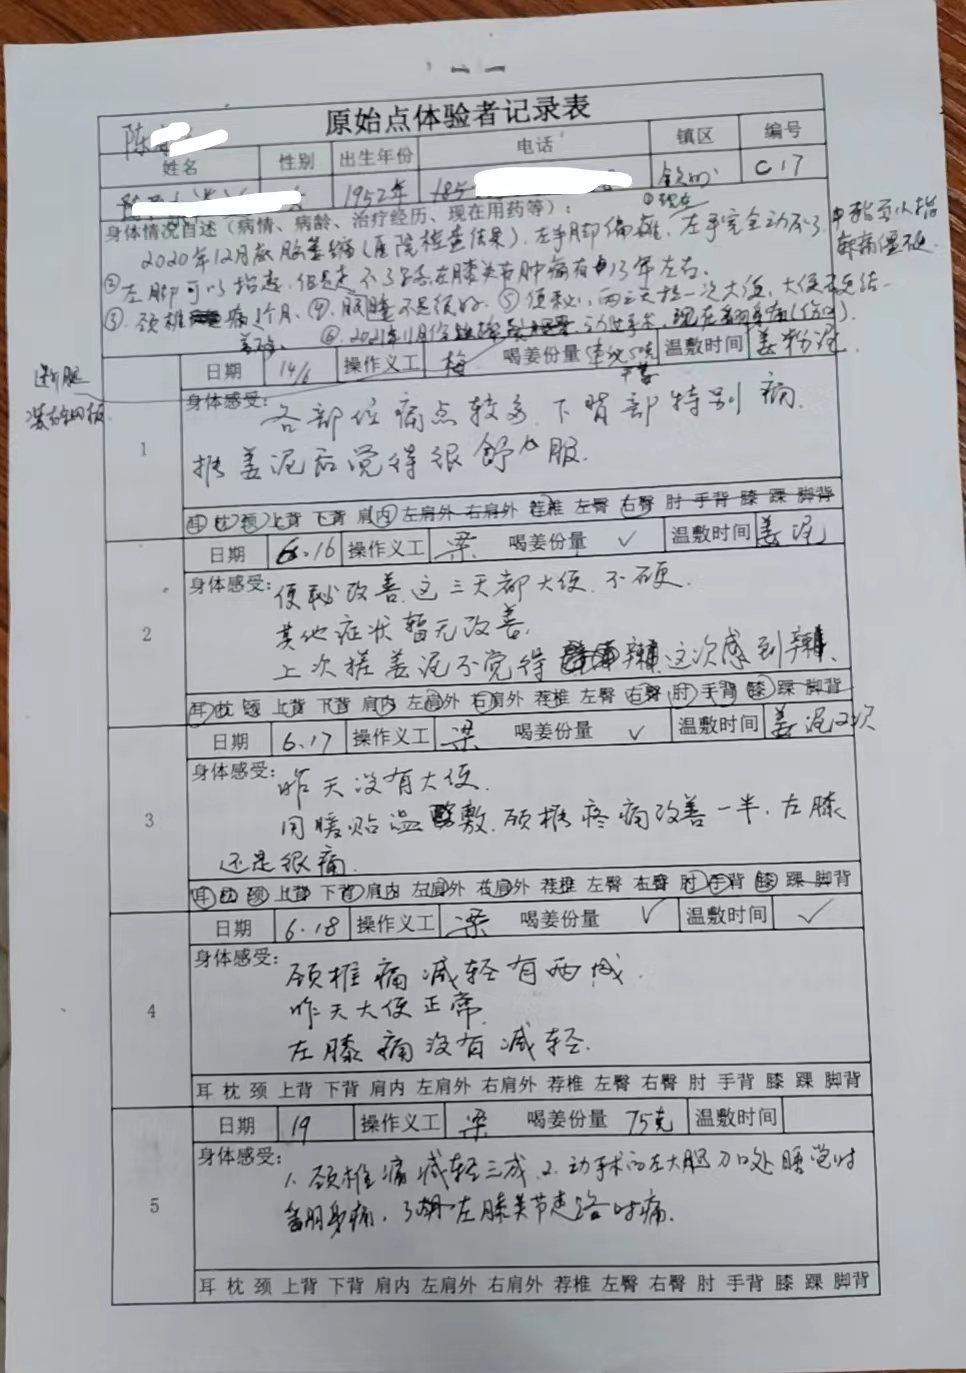 原始点体验者记录表
陈
姓名 性别 出生年份 电话 镇区 编号
1952年 185 C17
身体情况自述（病情、病龄、治疗经历、现在用药等）：
2020年12月底脑萎缩(医院检查结果)、左手脚偏瘫、左手完全动不了
②左脚可以抬起、但是走不了路左膝关节肿痛有13年左右。
③颈椎痛1个月、④眼睡不是很好、⑤便秘，两三天拉一次大便，大便
⑥2021年11月份
日期 14/6 操作义工 梅 喝姜份量 50克 温敷时间 姜粉泥
干姜
1
身体感受：各部位痛点较多、下背部特别痛.
搓姜泥后觉得很舒服.
耳 枕 颈 上背 下背 肩内 左肩外 右肩外 荐椎 左臀 右臀 肘 手背 膝 踝 脚背
日期 6.16 操作义工 梁 喝姜份量 ✓ 温敷时间 姜泥
2
身体感受：便秘改善、这三天都大便、不硬.
其他症状暂无改善.
上次搓姜泥不觉得 辣 这次感到辣.
耳 枕 颈 上背 下背 肩内 左肩外 右肩外 荐椎 左臀 右臀 肘 手背 膝 踝 脚背
日期 6.17 操作义工 梁 喝姜份量 ✓ 温敷时间 姜泥2次
3
身体感受：昨天没有大便.
用暖贴温敷、颈椎疼痛改善一半、左膝
还是很痛.
耳 枕 颈 上背 下背 肩内 左肩外 右肩外 荐椎 左臀 右臀 肘 手背 膝 踝 脚背
日期 6.18 操作义工 梁 喝姜份量 ✓ 温敷时间 ✓
4
身体感受：颈椎痛减轻有两成.
昨天大便正常
左膝痛没有减轻.
耳 枕 颈 上背 下背 肩内 左肩外 右肩外 荐椎 左臀 右臀 肘 手背 膝 踝 脚背
日期 19 操作义工 梁 喝姜份量 75克 温敷时间
5
身体感受：1、颈椎痛减轻三成、2、动手术的左大腿刀口处睡觉时
翻身痛、3、左膝关节走路时痛.
耳 枕 颈 上背 下背 肩内 左肩外 右肩外 荐椎 左臀 右臀 肘 手背 膝 踝 脚背